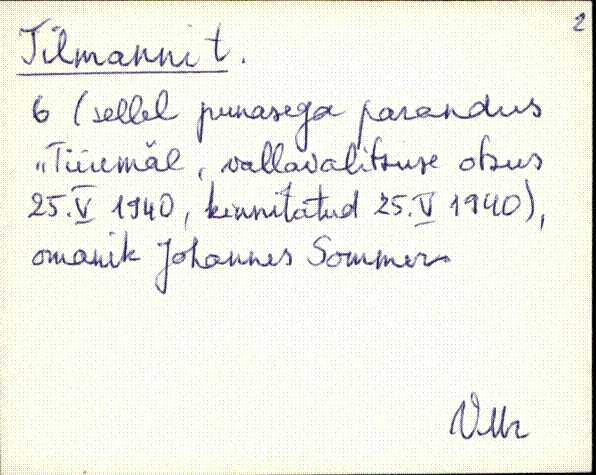 2
Tilmanni t.
6 (sellel punasega parandus
"Tüüemäe, vallavalitsuse otsus
25. V 1940, kinnitatud 25. V 1940),
omanik Johannes Sommer